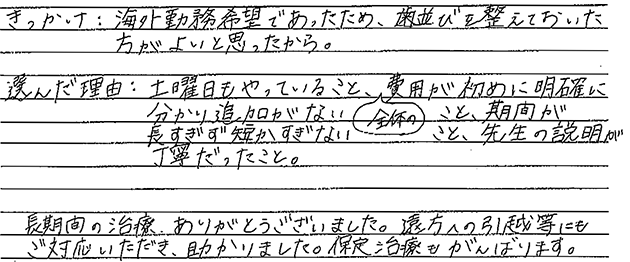 きっかけ：海外勤務希望であったため、歯並びを整えておいた
方がよいと思ったから。
選んだ理由：土曜日もやっていること、費用が初めに明確に
分かり追加がない こと、期間が
全体の
長すぎず短かすぎない こと、先生の説明が
丁寧だったこと。
長期間の治療、ありがとうございました。遠方への引越等にも
ご対応いただき、助かりました。保定治療もがんばります。